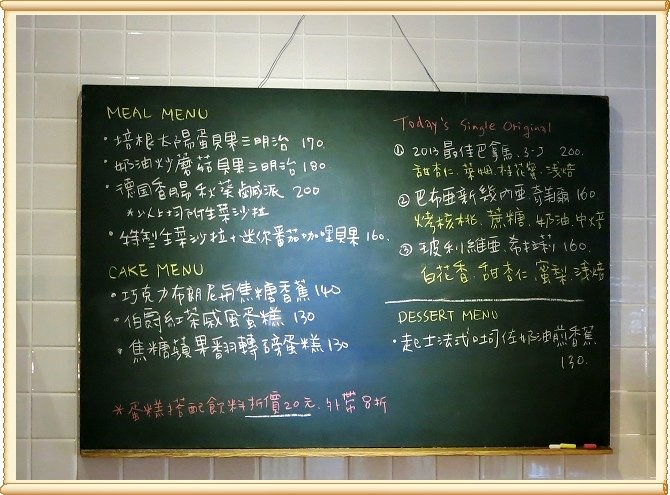 MEAL MENU
·培根太陽蛋貝果三明治 170.
·奶油炒蘑菇貝果三明治 180
·德國香腸秋葵鹹派 200
*以上均附生菜沙拉
·特製生菜沙拉+迷你番茄咖哩貝果 160.
CAKE MENU
·巧克力布朗尼與焦糖香蕉 140
·伯爵紅茶戚風蛋糕 130
·焦糖蘋果翻轉磅蛋糕 130
*蛋糕搭配飲料折價20元. 外帶8折
Today's Single Original
① 2013最佳巴拿馬. 3-3 200.
甜杏仁. 萊姆. 桂花蜜. 淺焙
② 巴布亞新幾內亞. 奇美霸 160
烤核桃. 蔗糖. 奶油. 中焙
③ 玻利維亞. 希望莉 160.
白花香. 甜杏仁. 蜜梨. 淺焙
DESSERT MENU
·起士法式吐司佐奶油煎香蕉
130.